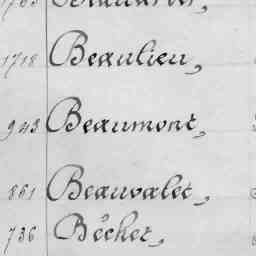 1718 Beaulieu,
943 Beaumont,
861 Beauvalet,
736 Béchet,